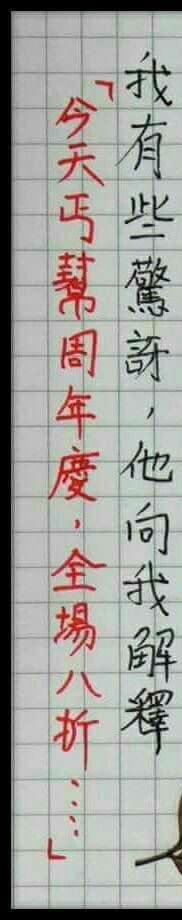 我有些驚訝，他向我解釋
「今天丐幫周年慶，全場八折……」